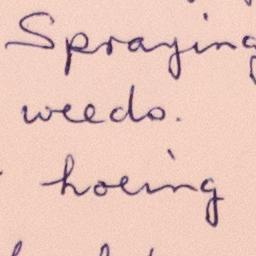 Spraying
weeds.
hoeing